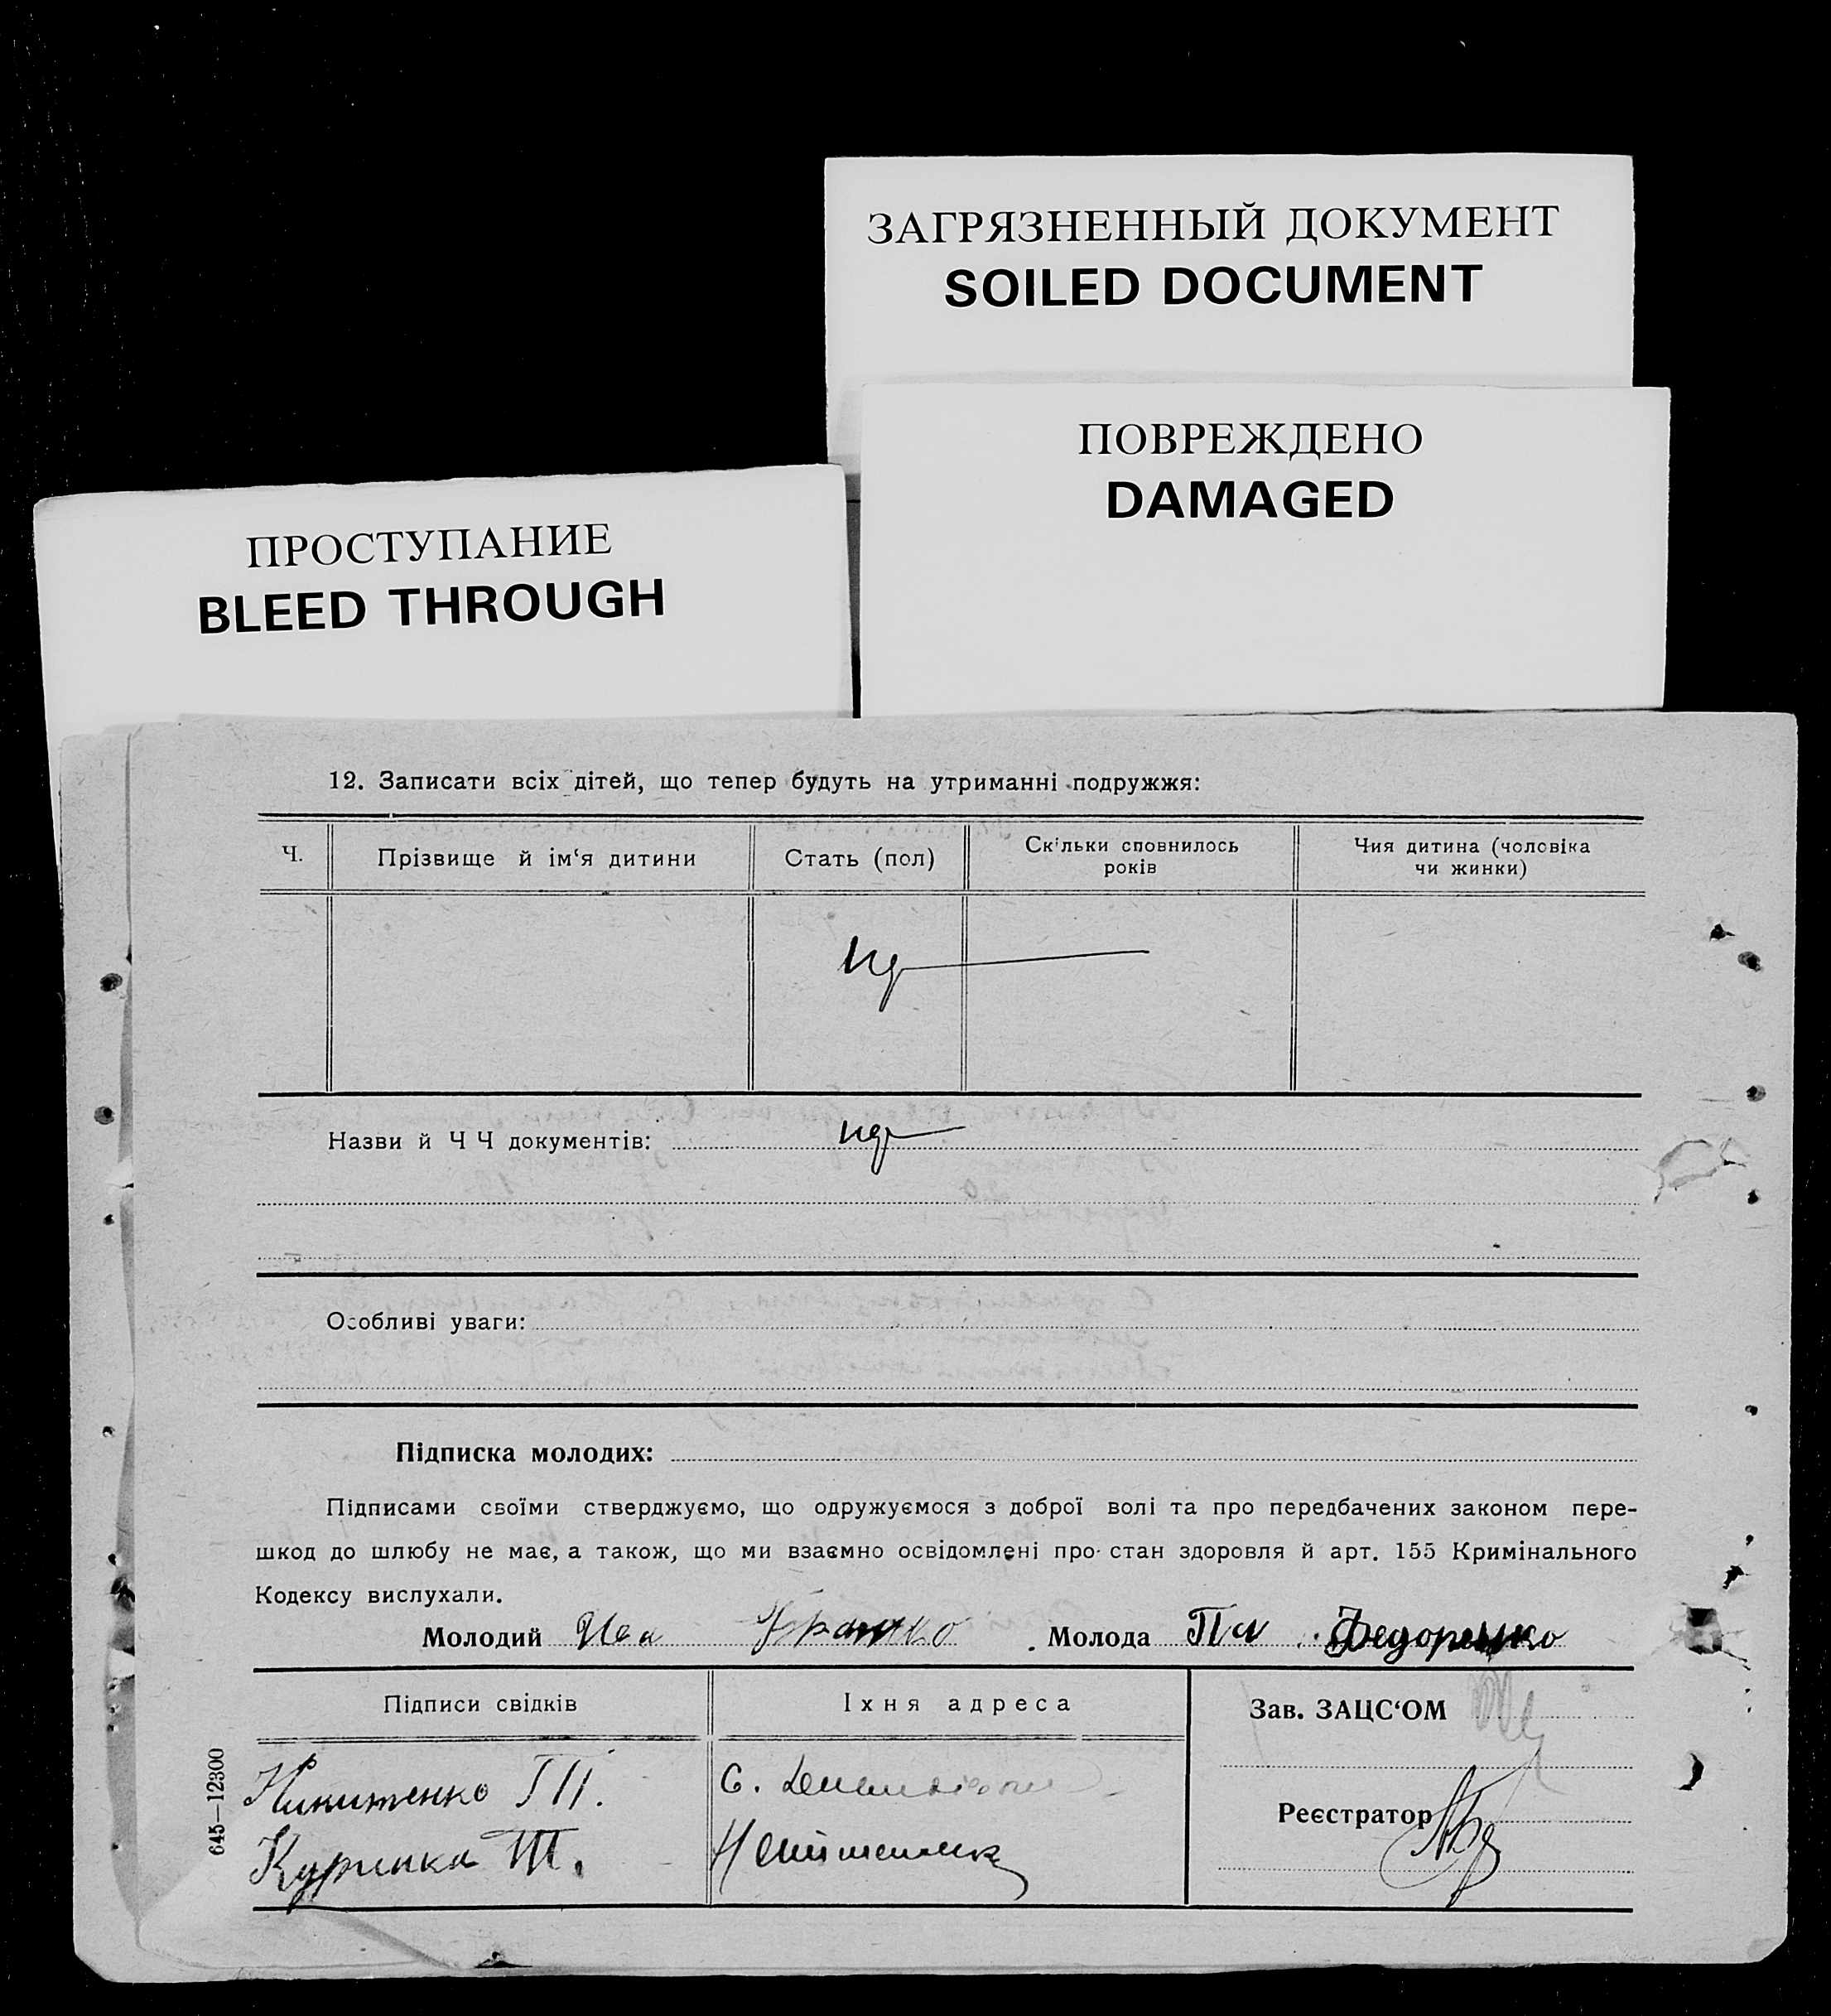 ЗАГРЯЗНЕННЫЙ ДОКУМЕНТ
SOILED DOCUMENT
ПОВРЕЖДЕНО
DAMAGED
ПРОСТУПАНИЕ
BLEED THROUGH
12. Записати всіх дітей, що тепер будуть на утриманні подружжя:
Ч.
Прізвище й ім‘я дитини
Стать (пол)
Скільки сповнилось
років
Чия дитина (чоловіка
чи жинки)
Назви й Ч Ч документів:
Особливі уваги:
Підписка молодих:
Підписами своїми стверджуємо, що одружуємося з доброї волі та про передбачених законом пере-
шкод до шлюбу не має, а також, що ми взаємно освідомлені про стан здоровля й арт. 155 Кримінального
Кодексу вислухали.
Молодий Молода Федоренко
Підписи свідків
Їхня адреса
Зав. ЗАЦС‘ОМ
Никитенко П.
С.
Реєстратор
645—12300